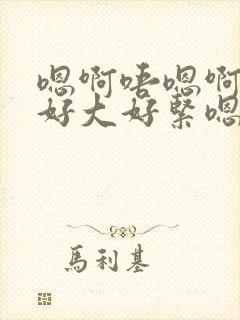 嗯啊唔嗯啊
好大好紧嗯
馬利基